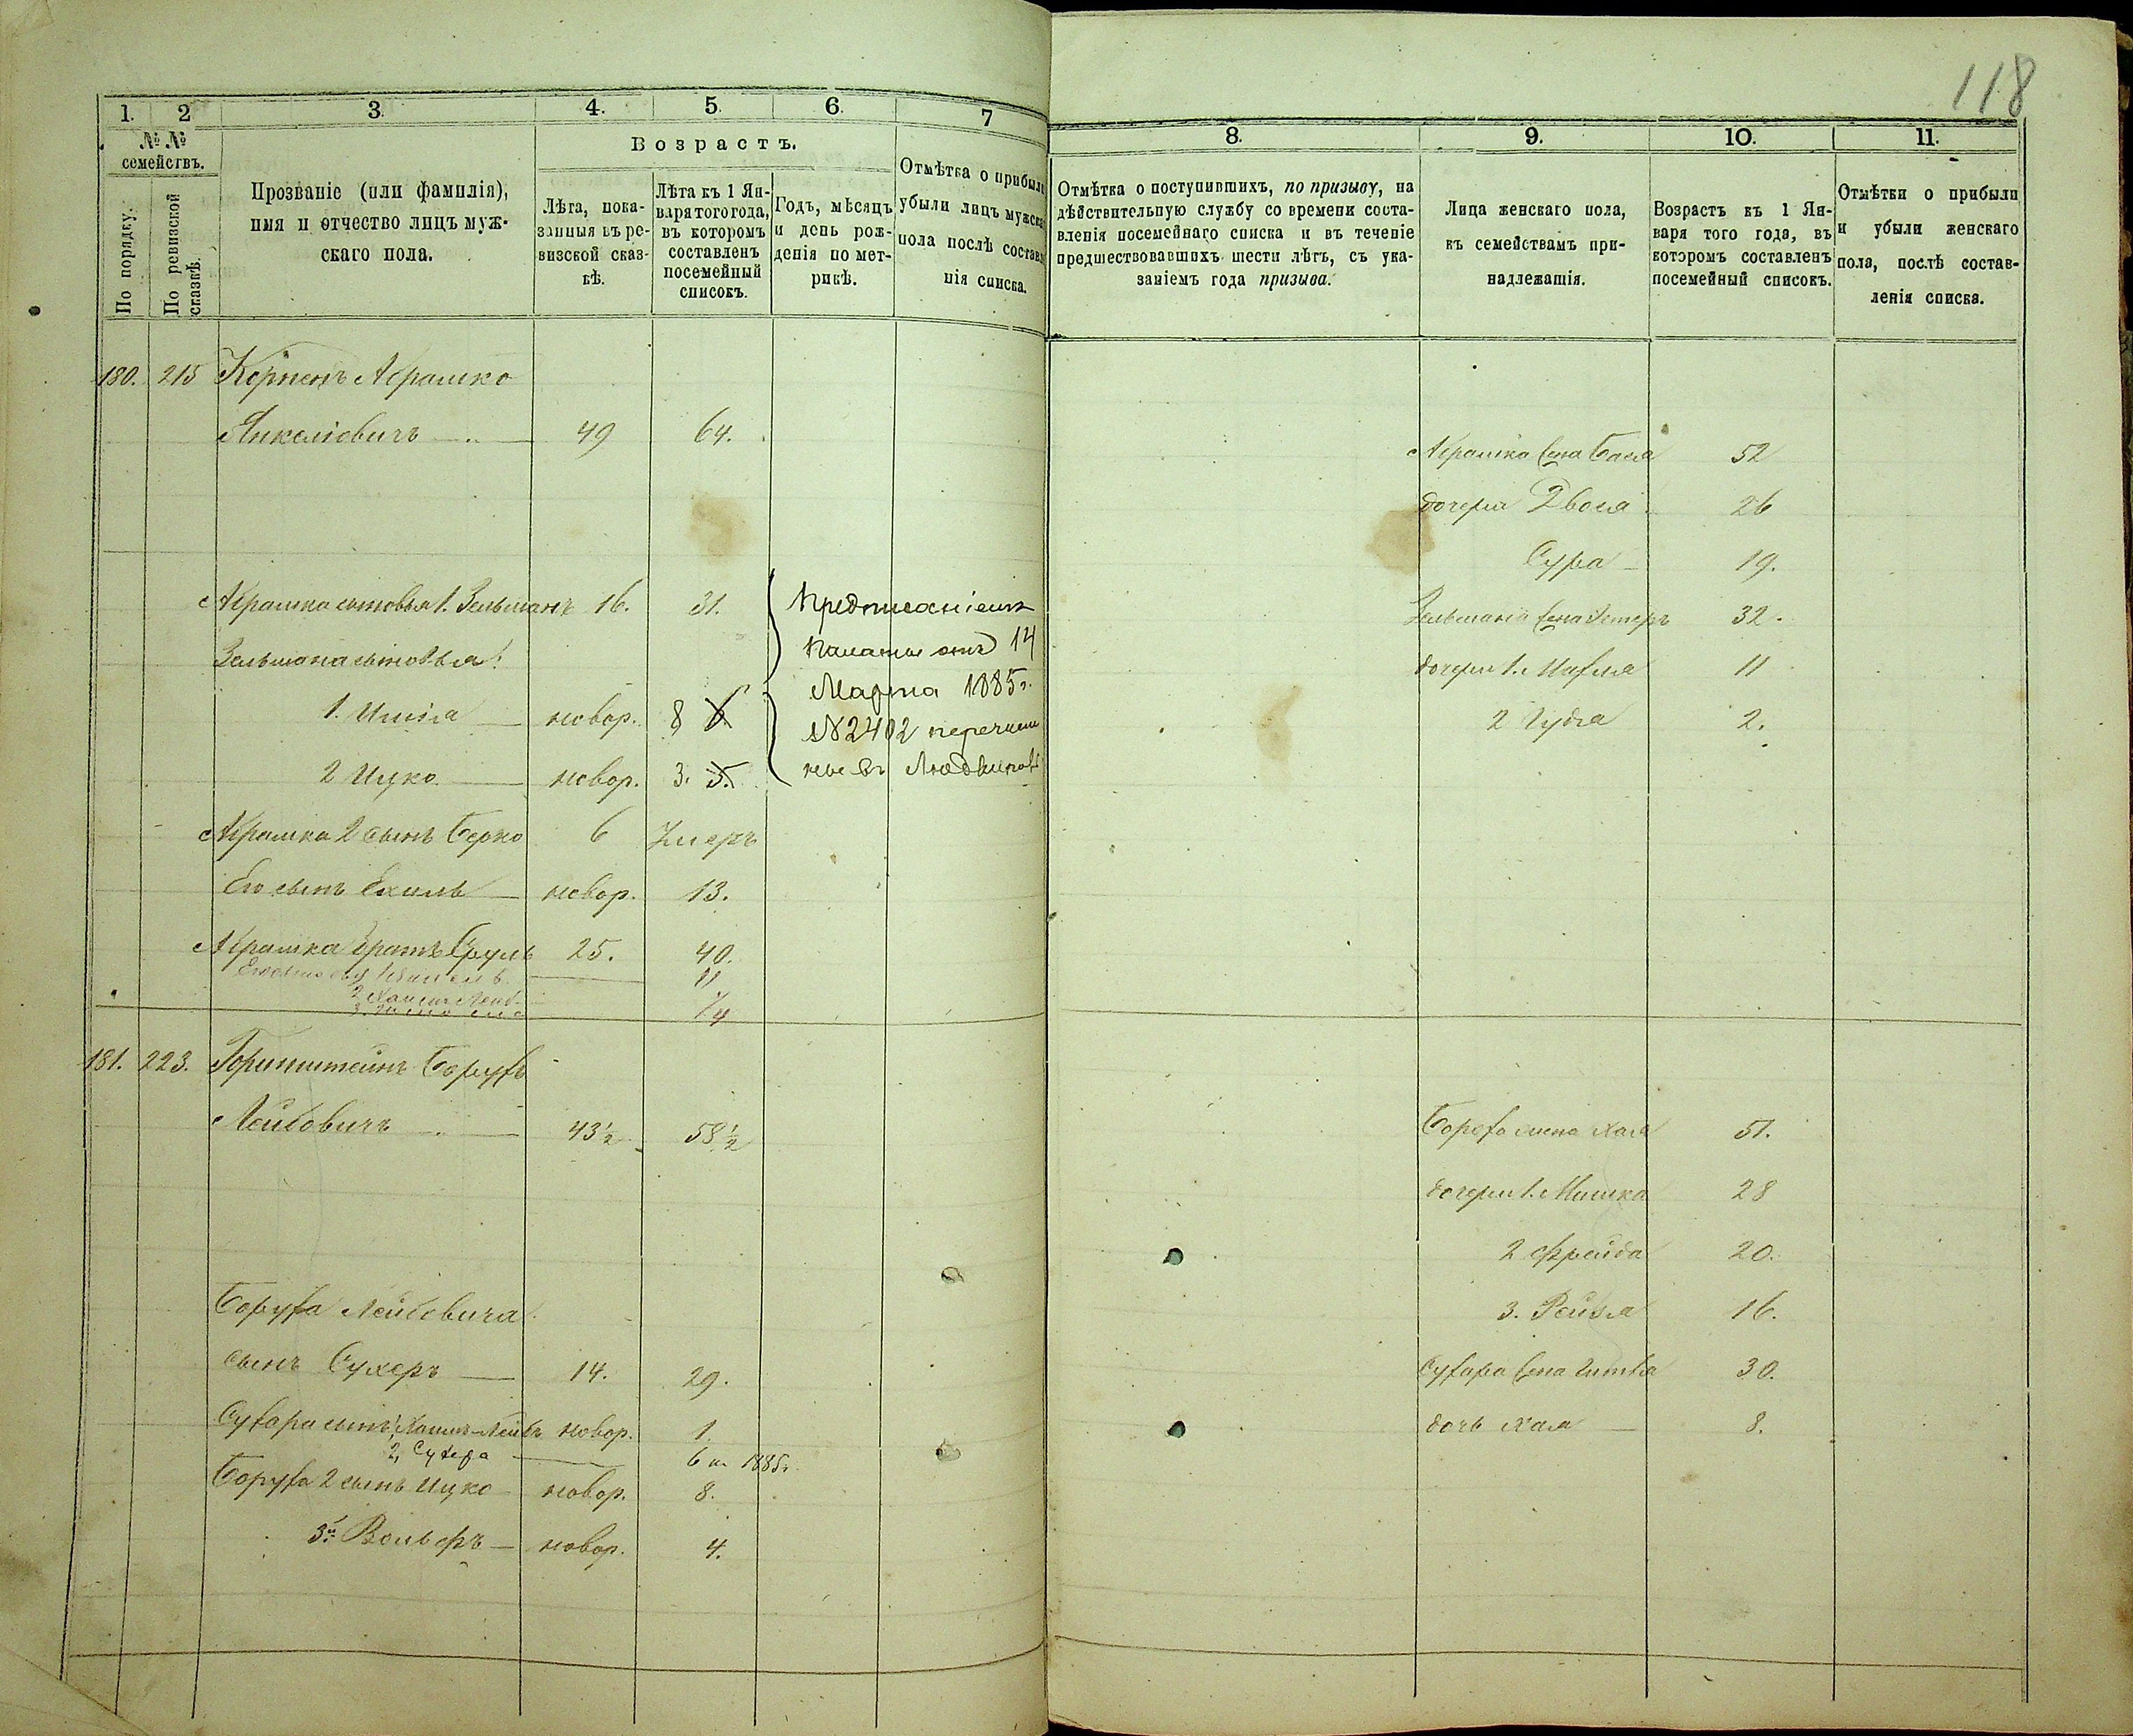 118
1. 2 3. 4. 5. 6. 7
№ № семействъ.
По порядку.
По ревизской сказкѣ.
Прозваніе (или фамилія),
имя и отчество лицъ муж-
скаго пола.
Возрастъ.
Лѣта, пока-
занныя въ ре-
визской сказ-
кѣ.
Лѣта къ 1 Ян-
варя того года,
въ которомъ
составленъ
посемейный
списокъ.
Годъ, мѣсяцъ
и день рож-
денія по мет-
рикѣ.
Отмѣтка о прибыли
убыли лицъ мужска
пола послѣ составл
нія списка.
180. 215 Абрашко
Янкелiовичъ 49 64.
Абрашка сыновья 1. Зельманъ 16. 31.
Зельмана сыновья:
1. новор. 8 6
2 Ицко новор. 3. 5.
Предписаніемъ
Палаты отъ 14
Марта 1885 г.
№ 2402 перечисле
ны въ
Абрашка 2 сынъ Берко 6 Умеръ
Его сынъ Ехиль новор. 13.
Абрашка братъ Сруль 25. 40.
11
181. 223. Горинштейнъ Борухъ
Лейбовичъ 43 1/2 58 1/2
Боруха Лейбовича
сынъ Сухеръ 14. 29.
Сухара сынъ 1, Хаимъ-Лейбъ новор. 1.
2, Сухера 6 м. 1885 г.
Боруха 2 сынъ Ицко новор. 8.
3й Вольфъ новор. 4.
8. 9. 10. 11.
Отмѣтка о поступившихъ, по призыву, на
дѣйствительную службу со времени соста-
вленія посемейнаго списка и въ теченіе
предшествовавшихъ шести лѣтъ, съ ука-
заніемъ года призыва.
Лица женскаго пола,
къ семействамъ при-
надлежащія.
Возрастъ къ 1 Ян-
варя того года, въ
которомъ составленъ
посемейный списокъ.
Отмѣтки о прибыли
и убыли женскаго
пола, послѣ состав-
ленія списка.
Абрашка жена Бася 52
дочери Двося 26
Сура 19.
Зельмана жена Эстеръ 32.
дочери 1. 11
2 Гудя 2.
жена Хая 51.
дочери 1. Мишка 28
2 Фрейда 20.
3. Рейзя 16.
Сухара жена Гитля 30.
дочь Хая 8.